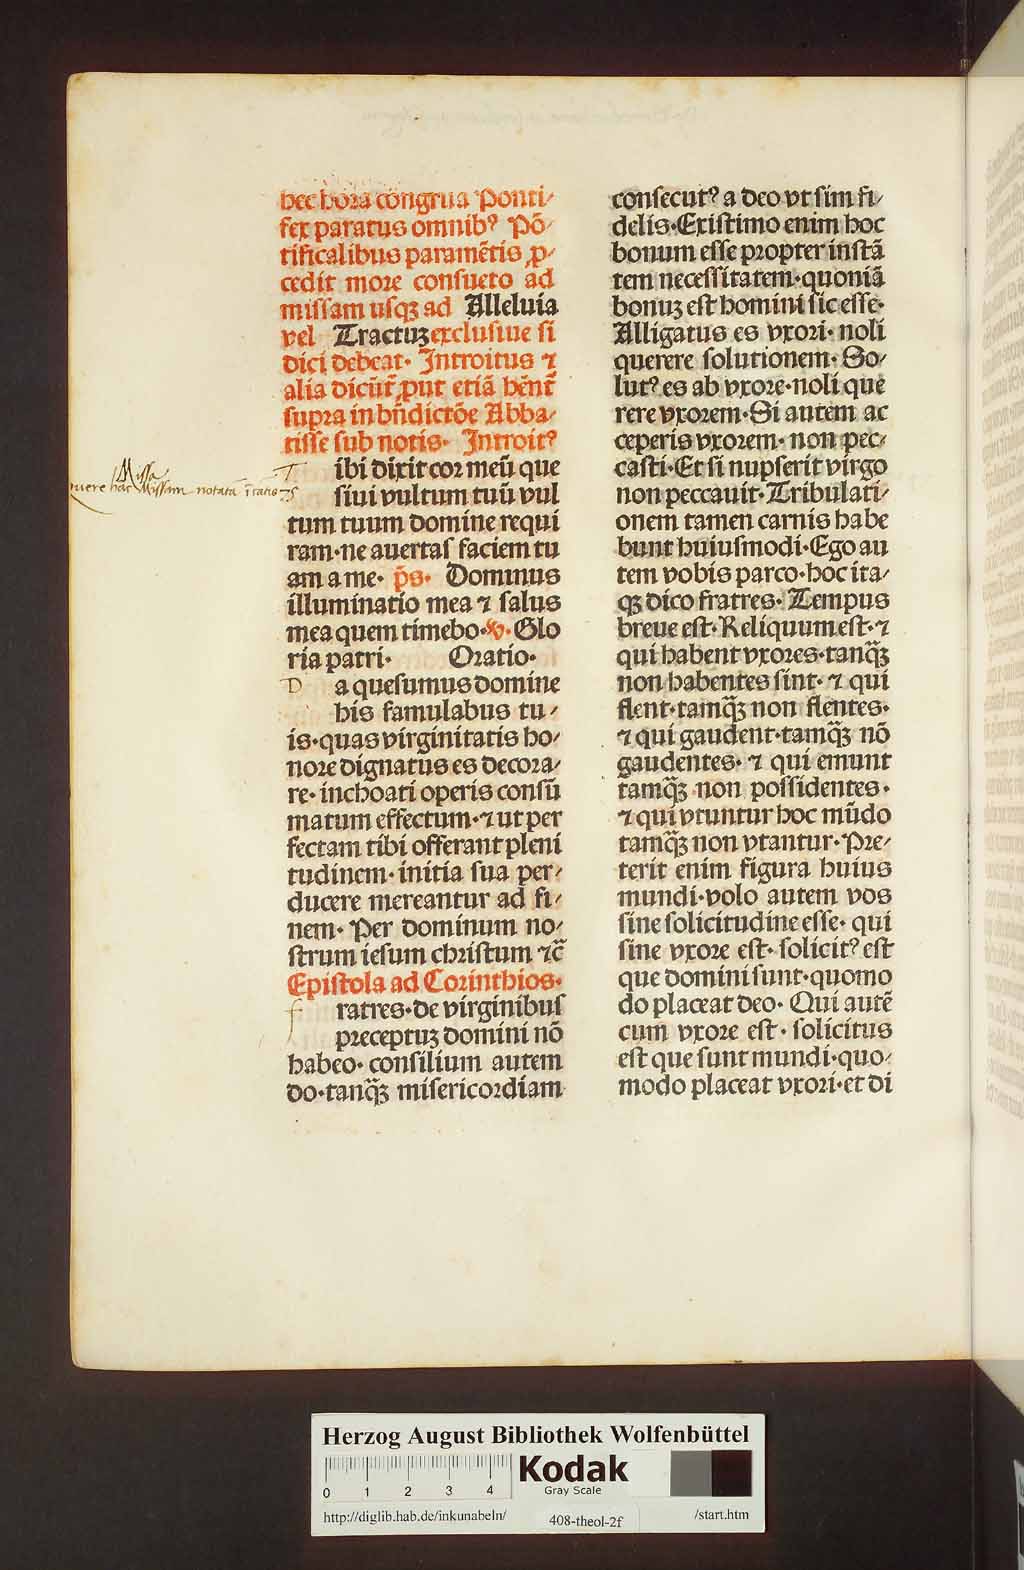 hec hora cōgrua Ponti⸗
fex paratus omnibꝰ Pō⸗
tificalibus paramētis ꝓ⸗
cedit more consueto ad
missam usqꝫ ad Alleluia
vel Tractuꝫ exclusiue si
dici debeat· Introitus ⁊
alia dicūt̄ ꝓut etiā hēnt̄
supra in bn̄dictōe Abba⸗
tisse sub notis· Introitꝰ
T ibi dixit cor meū que
siui vultum tuū vul
tum tuum domine requi
ram·ne auertas faciem tu
am a me· p̄s· Dominus
illuminatio mea ⁊ salus
mea quem timebo·℣·Glo
ria patri· Oratio·
D a quesumus domine
his famulabus tu⸗
is·quas virginitatis ho⸗
nore dignatus es decora⸗
re· inchoati operis consū
matum effectum·⁊ ut per
fectam tibi offerant pleni
tudinem· initia sua per⸗
ducere mereantur ad fi⸗
nem· Per dominum no⸗
strum iesum christum ⁊c̄
Epistola ad Corinthios·
f ratres·de virginibus
preceptuꝫ domini nō
habeo· consilium autem
do·tanqꝫ̄ misericordiam
Missa
hac Missam notata
consecutꝰ a deo vt sim fi⸗
delis·Existimo enim hoc
bonum esse propter instā
tem necessitatem·quoniā
bonuꝫ est homini sic esse·
Alligatus es vxori· noli
querere solutionem· So⸗
lutꝰ es ab vxore·noli que
rere vxorem·Si autem ac
ceperis vxorem· non pec⸗
casti·Et si nupserit virgo
non peccauit·Tribulati⸗
onem tamen carnis habe
bunt huiusmodi·Ego au
tem vobis parco·hoc ita⸗
qꝫ dico fratres· Tempus
breue est·Reliquum est·⁊
qui habent vxores·tanqꝫ̄
non habentes sint· ⁊ qui
flent·tamqꝫ̄ non flentes·
⁊ qui gaudent·tamqꝫ̄ nō
gaudentes· ⁊ qui emunt
tamqꝫ̄ non possidentes·
⁊ qui vtuntur hoc mūdo
tamqꝫ̄ non vtantur·Pre⸗
terit enim figura huius
mundi·volo autem vos
sine solicitudine esse· qui
sine vxore est· solicitꝰ est
que domini sunt·quomo
do placeat deo· Qui autē
cum vxore est· solicitus
est que sunt mundi·quo⸗
modo placeat vxori·et di
Herzog August Bibliothek Wolfenbüttel
0 1 2 3 4
Kodak
Gray Scale
http://diglib.hab.de/inkunabeln/ 408-theol-2f /start.htm